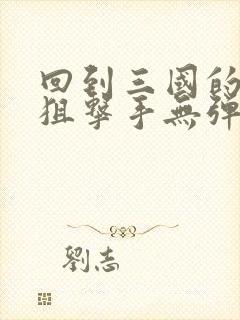 回到三國的
狙擊手無彈
劉志